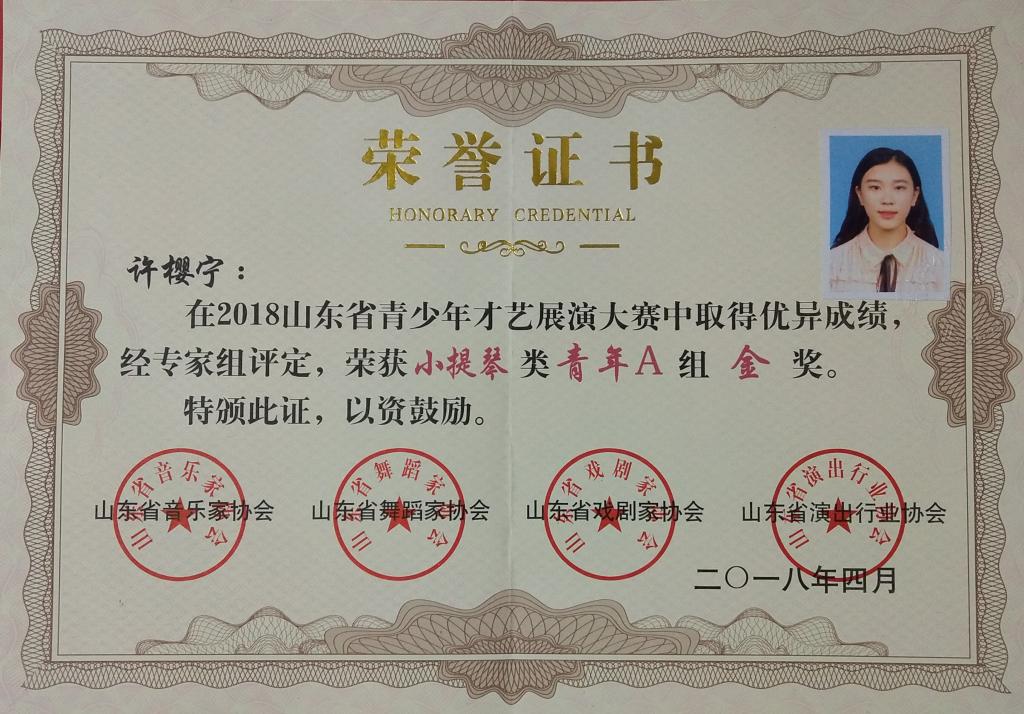 荣誉证书
HONORARY CREDENTIAL
许樱宁：
在2018山东省青少年才艺展演大赛中取得优异成绩，
经专家组评定，荣获小提琴类青年A组 金 奖。
特颁此证，以资鼓励。
山东省音乐家协会
山东省舞蹈家协会
山东省戏剧家协会
山东省演出行业协会
山东省音乐家协会
山东省舞蹈家协会
山东省戏剧家协会
山东省演出行业协会
二〇一八年四月